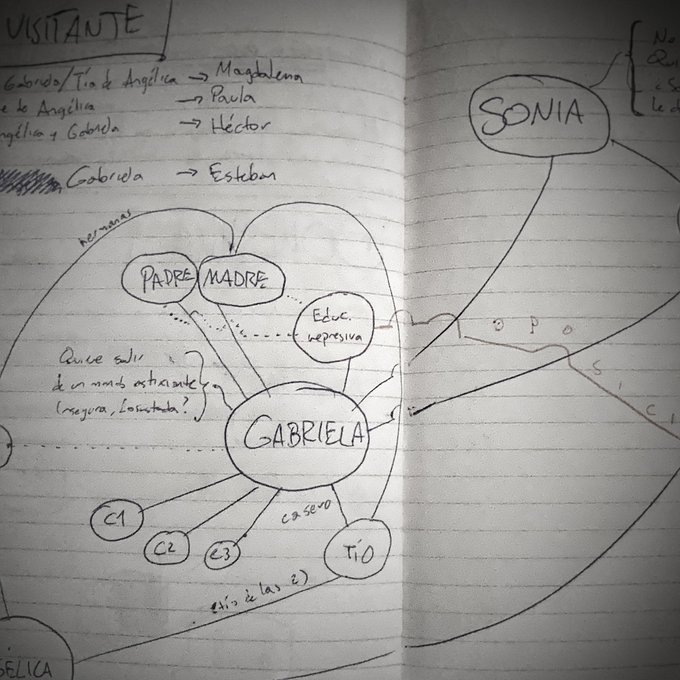 VISITANTE
Gabriela/Tía de Angélica → Magdalena
de Angélica → Paula
Angélica y Gabriela → Héctor
Gabriela → Esteban
SONIA
hermanas
PADRE
MADRE
Educ.
represiva
O P O S I C I
Quiere salir
de un mundo asfixiante
Insegura,
GABRIELA
C1
C2
C3
casero
TÍO
(tío de las 2)
GÉLICA